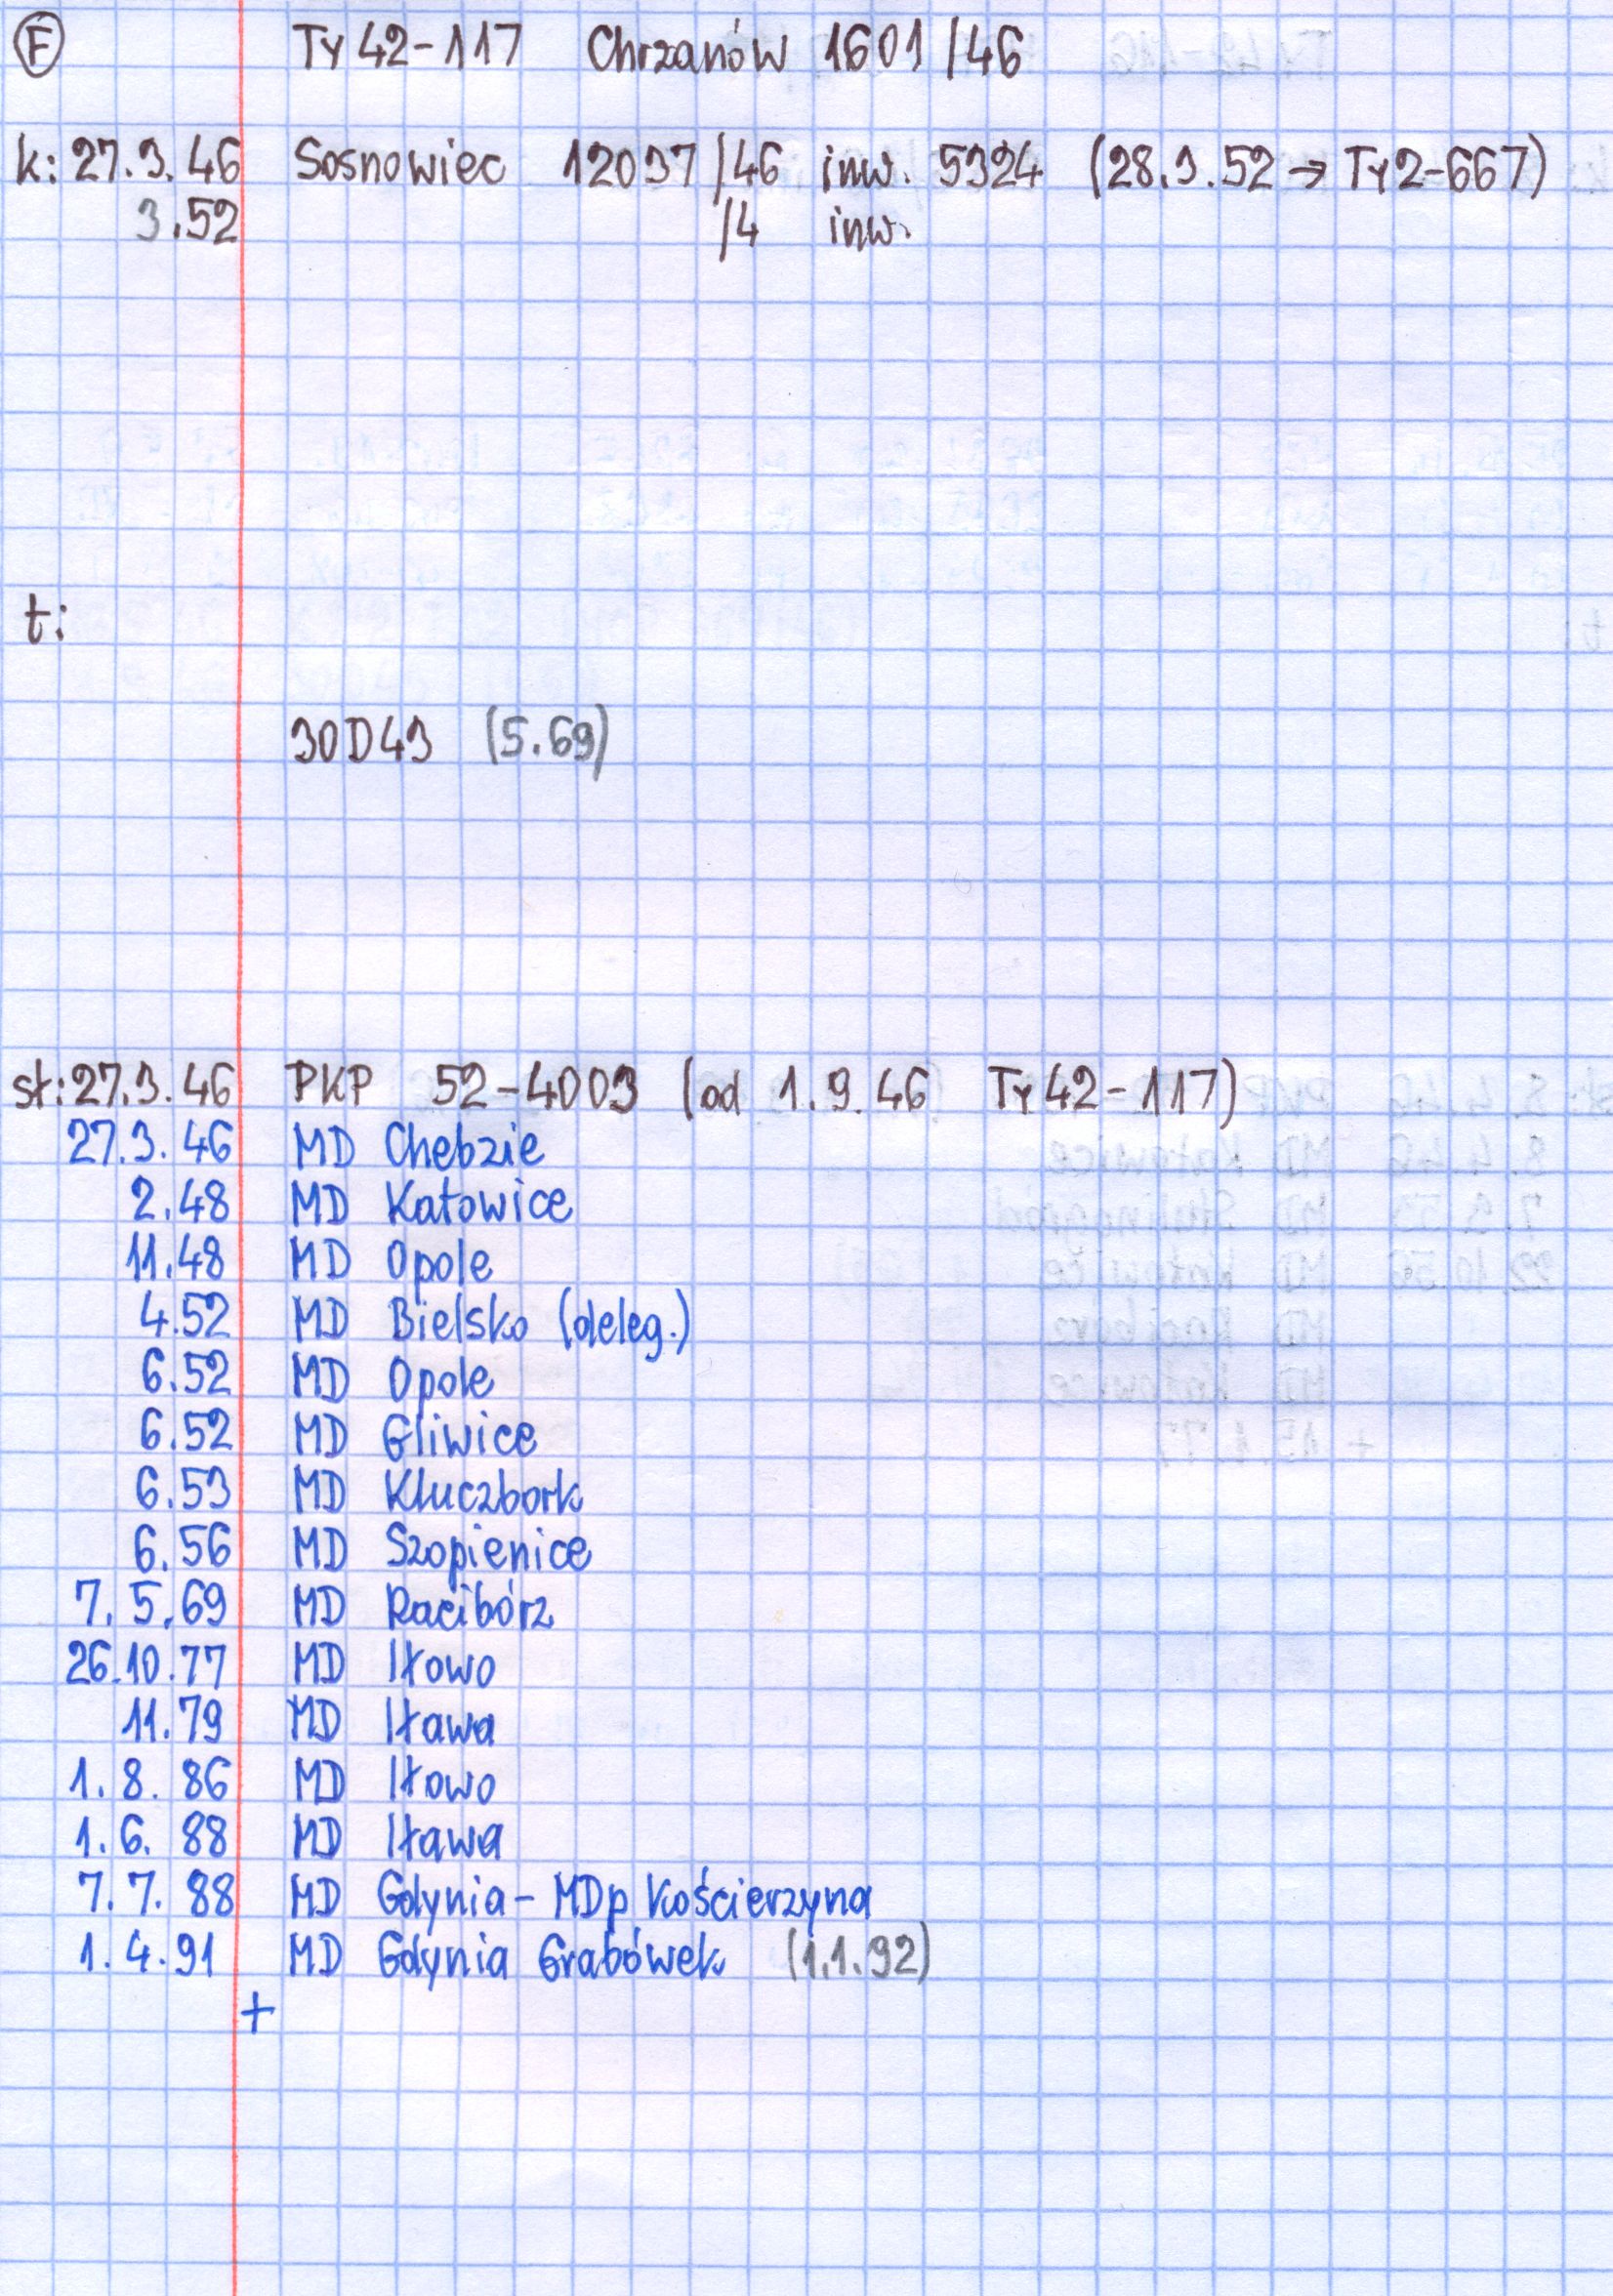 F Ty42-117 Chrzanów 1601/46
k: 27.3.46 Sosnowiec 12037/46 inw. 5324 (28.3.52 → Ty2-667)
3.52 /4 inw.
t:
30D43 (5.69)
st: 27.3.46 PKP 52-4003 (od 1.9.46 Ty42-117)
27.3.46 MD Chebzie
2.48 MD Katowice
11.48 MD Opole
4.52 MD Bielsko (deleg.)
6.52 MD Opole
6.52 MD Gliwice
6.53 MD Kluczbork
6.56 MD Szopienice
7.5.69 MD Racibórz
26.10.77 MD Iłowo
11.79 MD Iława
1.8.86 MD Iłowo
1.6.88 MD Iława
7.7.88 MD Gdynia - MDp Kościerzyna
1.4.91 MD Gdynia Grabówek (1.1.92)
+